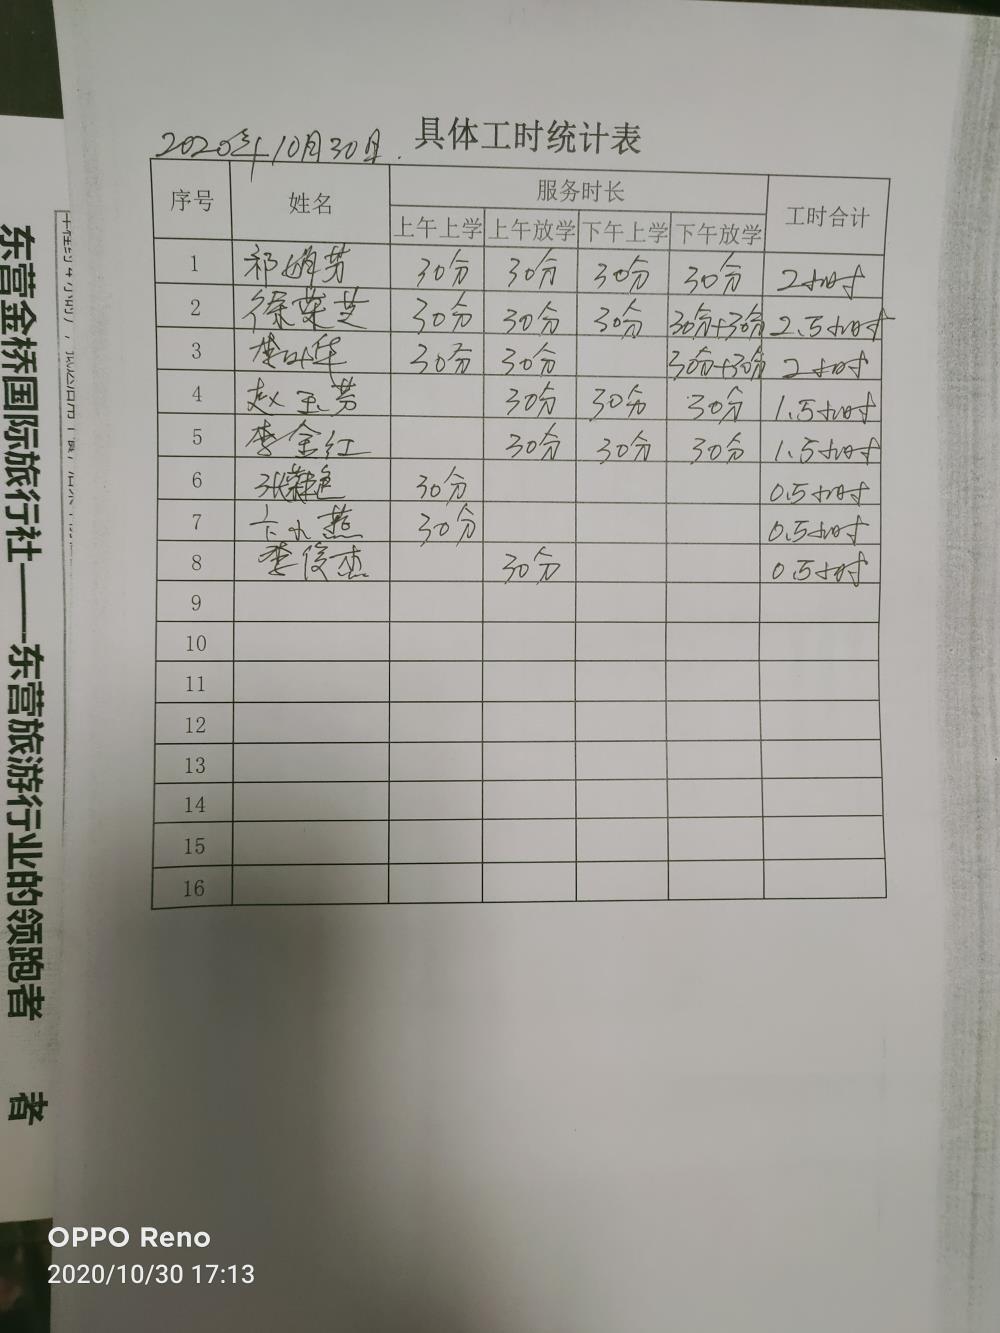 2020年10月30日.
具体工时统计表
序号 姓名 服务时长 工时合计
上午上学 上午放学 下午上学 下午放学
1 芳 30分 30分 30分 30分 2小时
2 徐荣芝 30分 30分 30分 30分+30分 2.5小时
3 李叶华 30分 30分 30分+30分 2小时
4 赵玉芳 30分 30分 30分 1.5小时
5 李金红 30分 30分 30分 1.5小时
6 张荣艳 30分 0.5小时
7 卞小燕 30分 0.5小时
8 李俊杰 30分 0.5小时
9
10
11
12
13
14
15
16
东营金桥国际旅行社——东营旅游行业的领跑者
者
OPPO Reno
2020/10/30 17:13